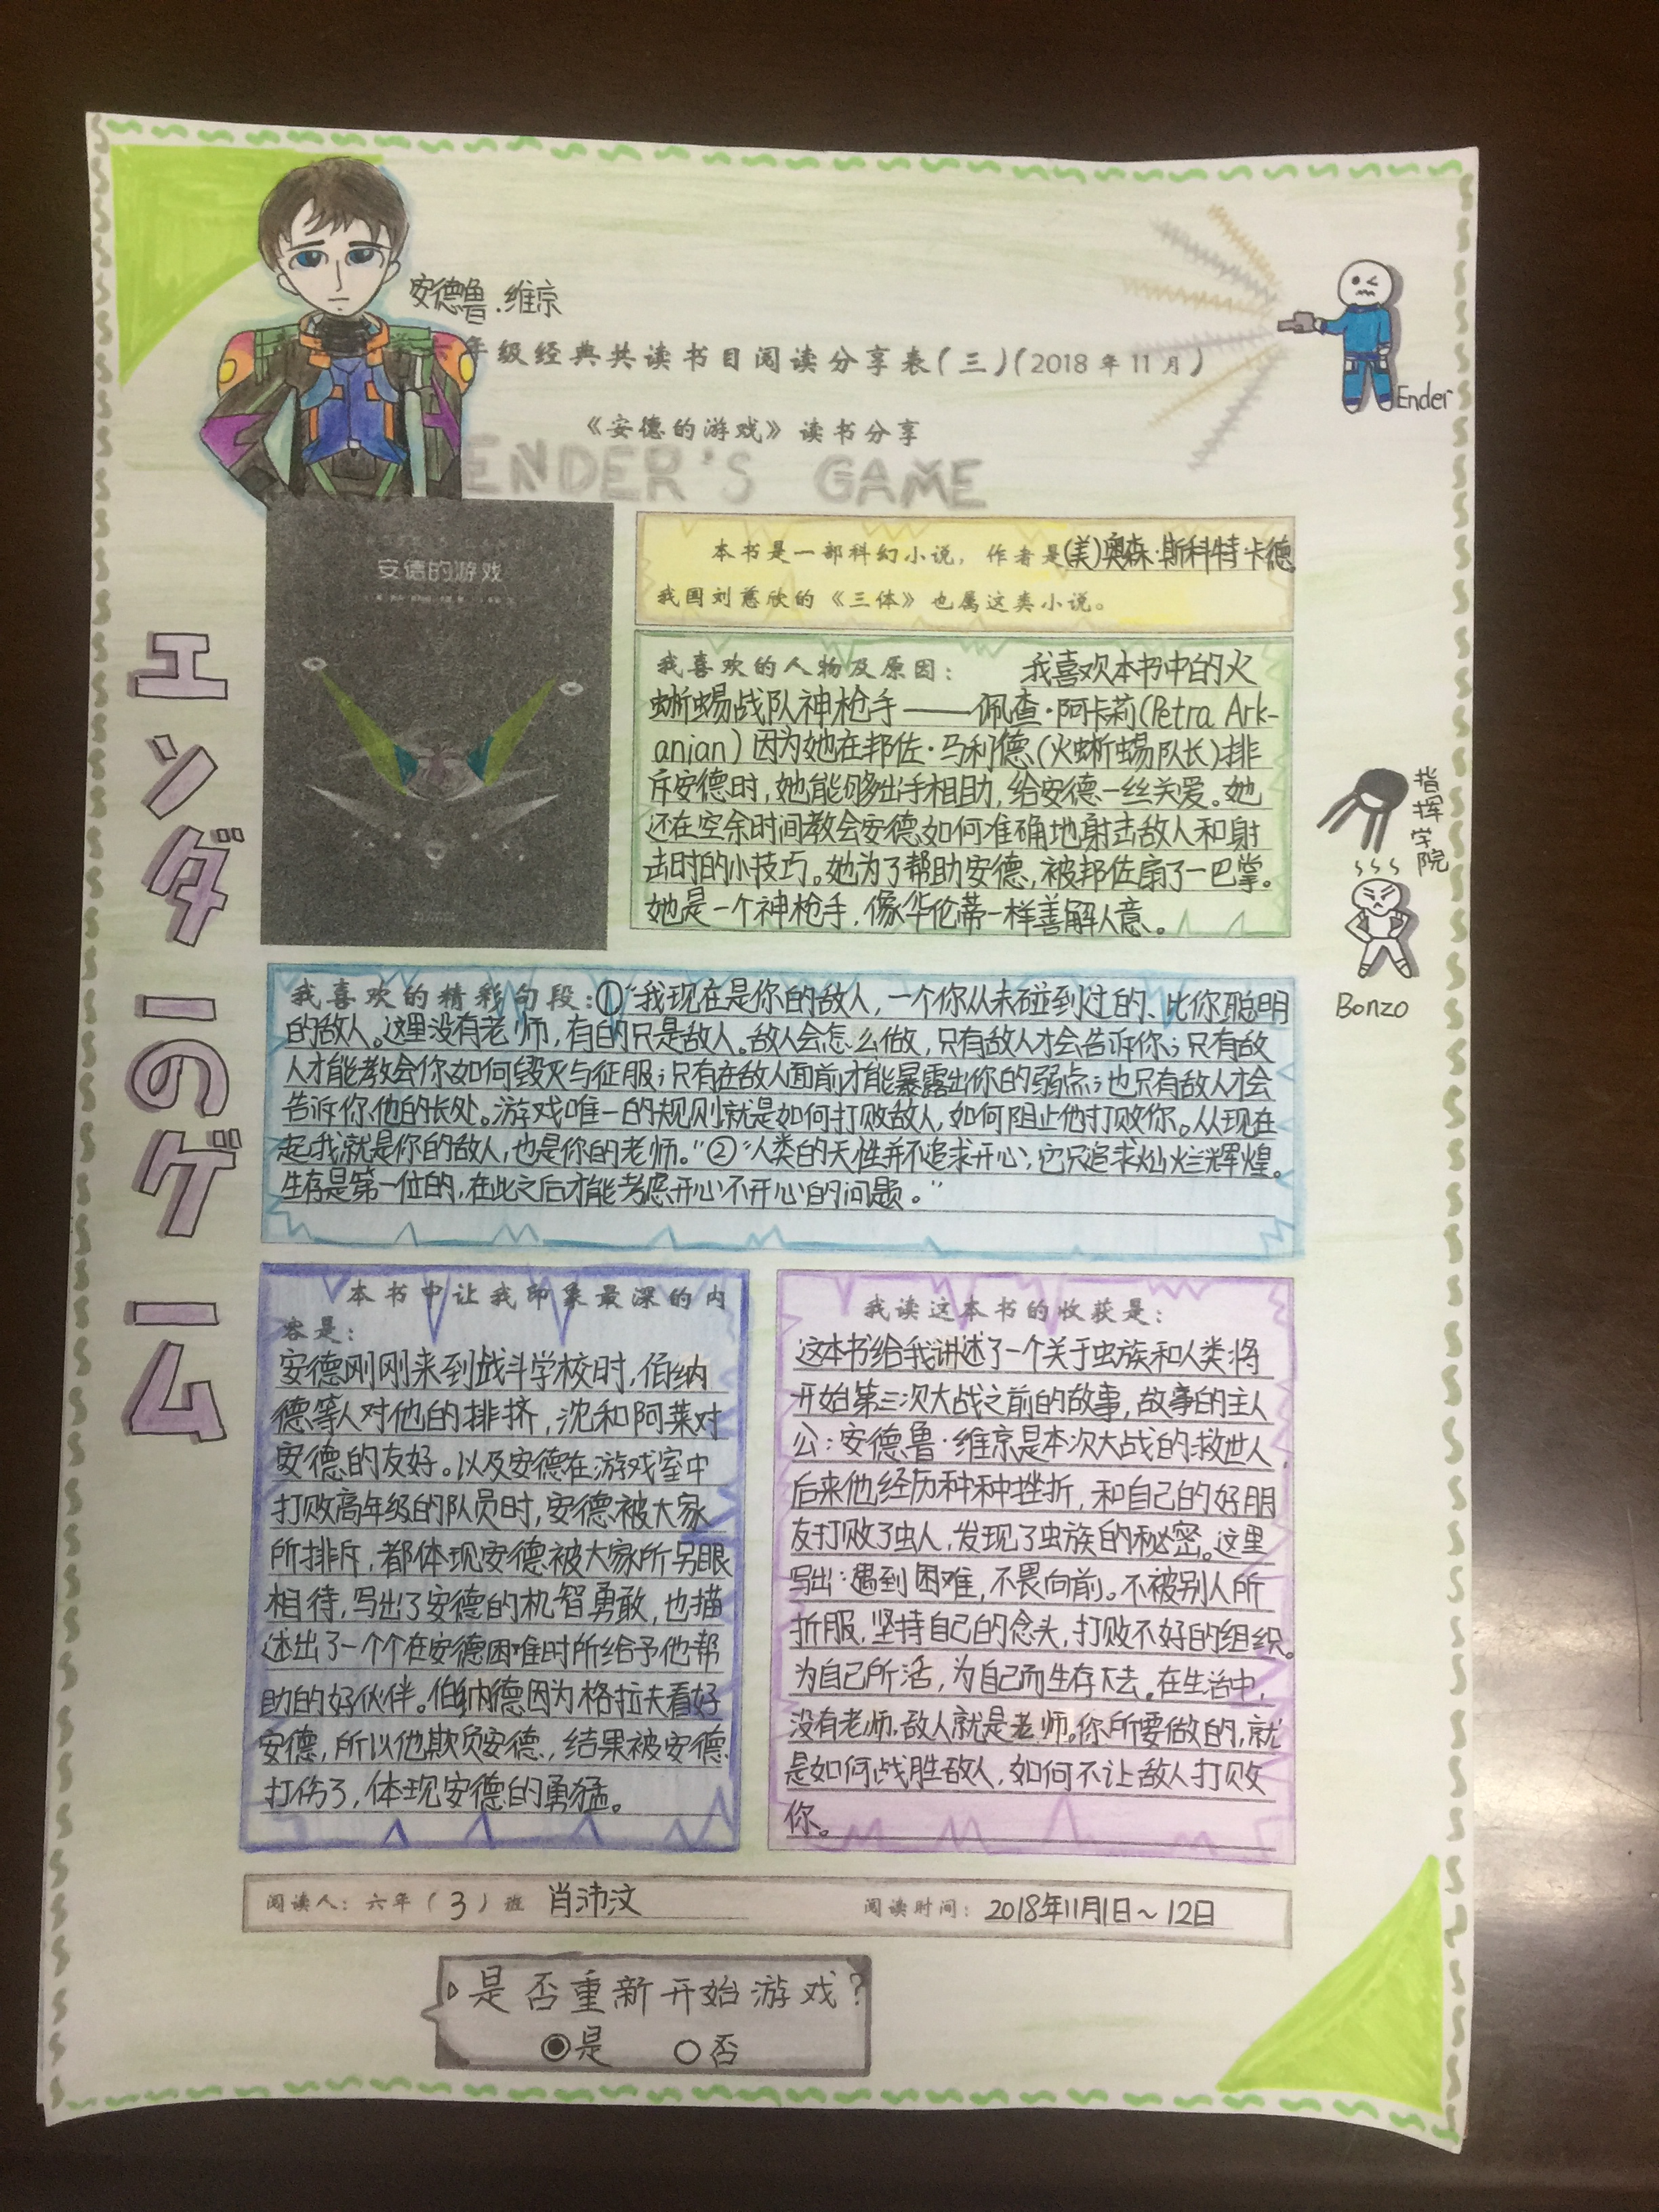 安德鲁·维京
六年级经典共读书目阅读分享表(三)(2018年11月)
《安德的游戏》读书分享
ENDER'S GAME
Ender
安德的游戏
エンダーのゲーム
本书是一部科幻小说，作者是(美)奥森·斯科特·卡德。
我国刘慈欣的《三体》也属这类小说。
我喜欢的人物及原因： 我喜欢本书中的火
蜥蜴战队神枪手——佩查·阿卡莉(Petra Ark-
anian)因为她在邦佐·马利德(火蜥蜴队长)排
斥安德时，她能够出手相助，给安德一丝关爱。她
还在空余时间教会安德如何准确地射击敌人和射
击时的小技巧。她为了帮助安德，被邦佐扇了一巴掌。
她是一个神枪手，像华伦蒂一样善解人意。
指挥学院
Bonzo
我喜欢的精彩句段：①“我现在是你的敌人，一个你从未碰到过的、比你聪明
的敌人。这里没有老师，有的只是敌人。敌人会怎么做，只有敌人才会告诉你；只有敌
人才能教会你如何毁灭与征服；只有在敌人面前才能暴露出你的弱点；也只有敌人才会
告诉你他的长处。游戏唯一的规则就是如何打败敌人，如何阻止他打败你。从现在
起我就是你的敌人，也是你的老师。”②“人类的天性并不追求开心，它只追求灿烂辉煌。
生存是第一位的，在此之后才能考虑开心不开心的问题。”
本书中让我印象最深的内
容是：
安德刚刚来到战斗学校时，伯纳
德等人对他的排挤，沈和阿莱对
安德的友好。以及安德在游戏室中
打败高年级的队员时，安德被大家
所排斥，都体现安德被大家所另眼
相待，写出了安德的机智勇敢，也描
述出了一个个在安德困难时所给予他帮
助的好伙伴。伯纳德因为格拉夫看好
安德，所以他欺负安德，结果被安德
打伤了，体现安德的勇猛。
我读这本书的收获是：
这本书给我讲述了一个关于虫族和人类将
开始第三次大战之前的故事，故事的主人
公：安德鲁·维京是本次大战的救世人，
后来他经历种种挫折，和自己的好朋
友打败了虫人，发现了虫族的秘密。这里
写出：遇到困难，不畏向前。不被别人所
折服，坚持自己的念头，打败不好的组织。
为自己所活，为自己而生存下去。在生活中，
没有老师，敌人就是老师。你所要做的，就
是如何战胜敌人，如何不让敌人打败
你。
阅读人：六年（3）班 肖沛汶 阅读时间：2018年11月1日～12日
是否重新开始游戏?
是 否